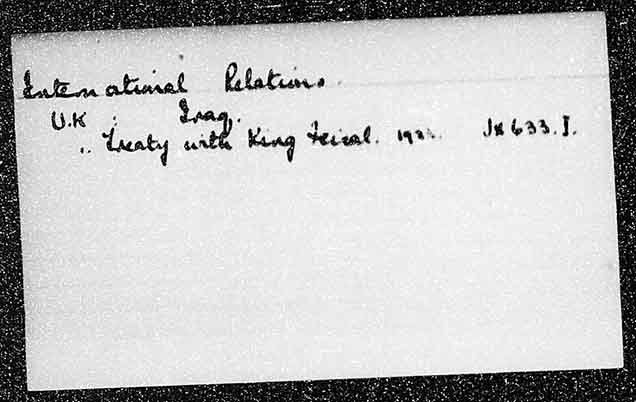 International Relations.
U.K : Iraq.
.. Treaty with King Feisal. Jx 633. I.